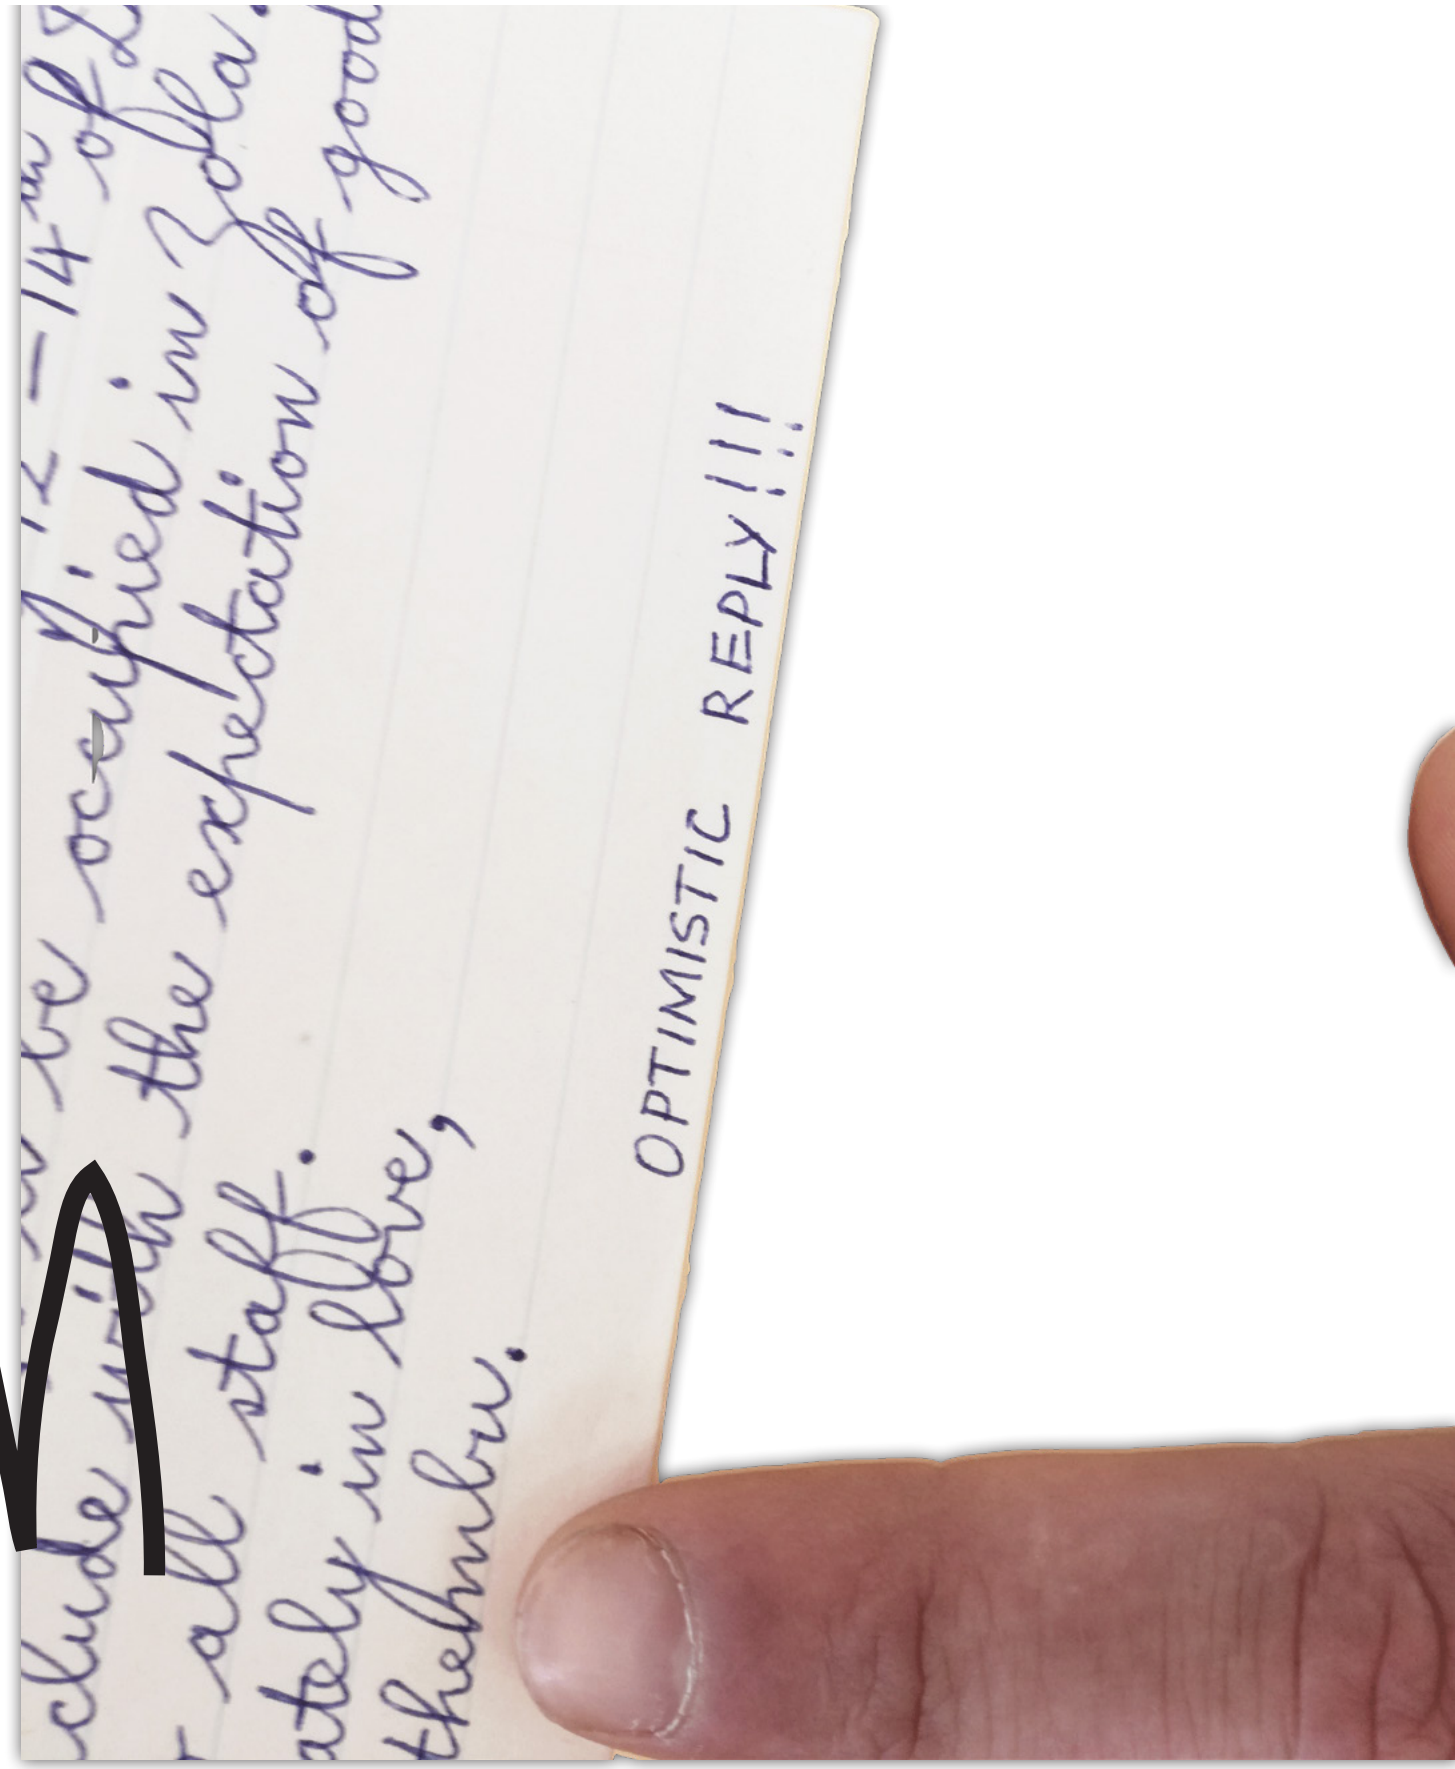 12 - 14th of
be occupied in Zola.
clude with the expectation of good
all staff.
ately in love,
thembu.
OPTIMISTIC REPLY!!!